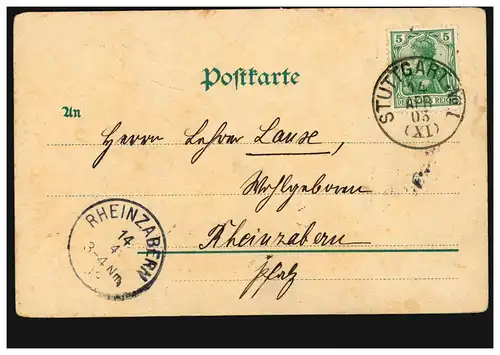 5 5
DEUTSCHES REICH
STUTTGART No 1
14
APR
03
(XI)
Postkarte
An
Herrn Lehrer Lause,
Wohlgeboren
Rheinzabern
Pfalz
RHEINZABERN
14
4
3-4 Nm